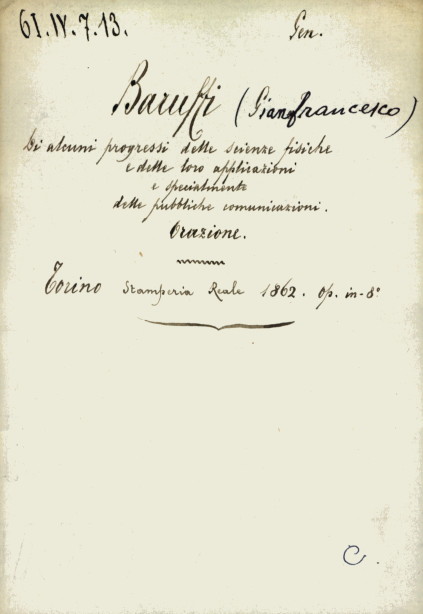 61.IV.7.13.
Gen.
Baruffi (Gianfrancesco)
Di alcuni progressi delle scienze fisiche
e delle loro applicazioni
e specialmente
delle pubbliche comunicazioni.
Orazione.
Torino Stamperia Reale 1862. Op. in-8°
C.